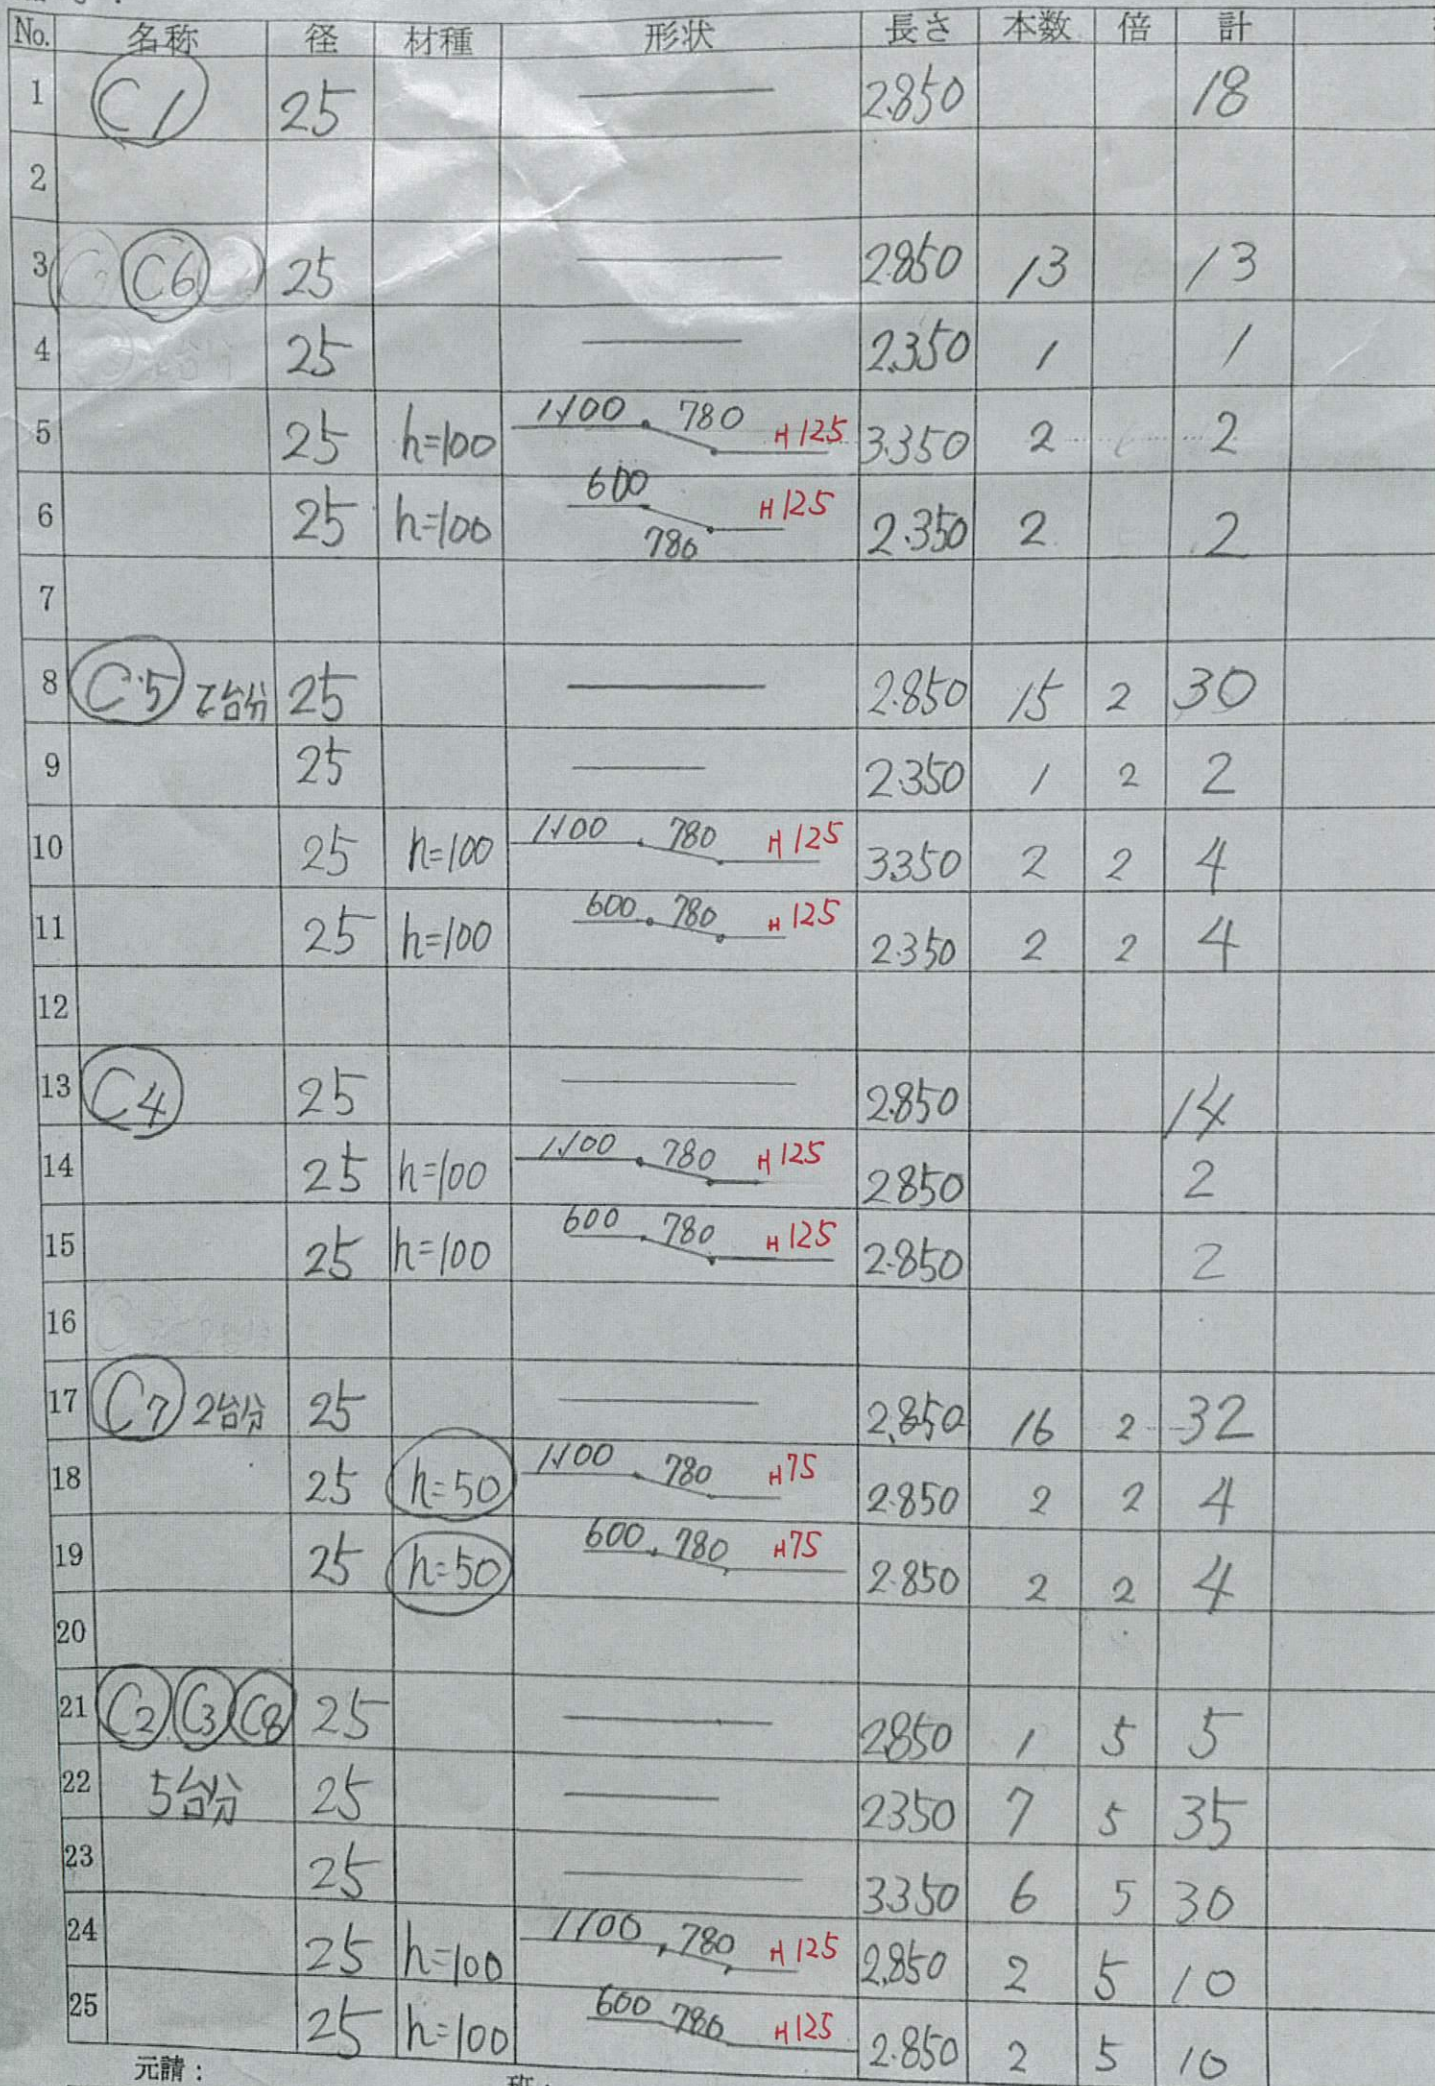 No. 名称 径 材種 形状 長さ 本数 倍 計
1 C1 25 2.850 18
2
3 C6 25 2.850 13 13
4 25 2.350 1 1
5 25 h=100 1.100 780 H125 3.350 2 2
6 25 h=100 600 780 H125 2.350 2 2
7
8 C5 2台分 25 2.850 15 2 30
9 25 2.350 1 2 2
10 25 h=100 1.100 780 H125 3.350 2 2 4
11 25 h=100 600 780 H125 2.350 2 2 4
12
13 C4 25 2.850 14
14 25 h=100 1.100 780 H125 2.850 2
15 25 h=100 600 780 H125 2.850 2
16
17 C7 2台分 25 2.850 16 2 32
18 25 h=50 1.100 780 H75 2.850 2 2 4
19 25 h=50 600 780 H75 2.850 2 2 4
20
21 C2 C3 C8 25 2.850 1 5 5
22 5台分 25 2350 7 5 35
23 25 3350 6 5 30
24 25 h=100 1100 780 H125 2.850 2 5 10
25 25 h=100 600 780 H125 2.850 2 5 10
元請：